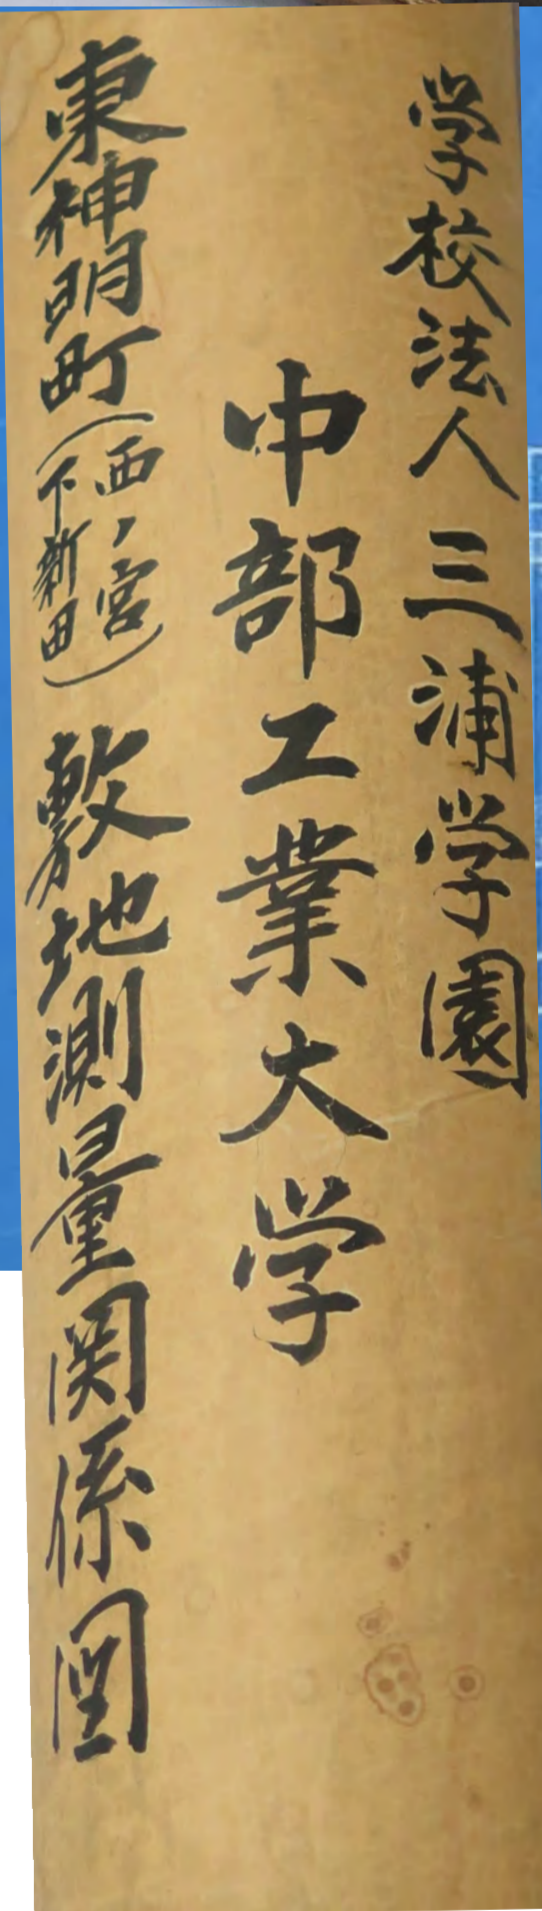 学校法人 三浦学園
中部工業大学
東神明町(西ノ宮 下新田)敷地測量関係図